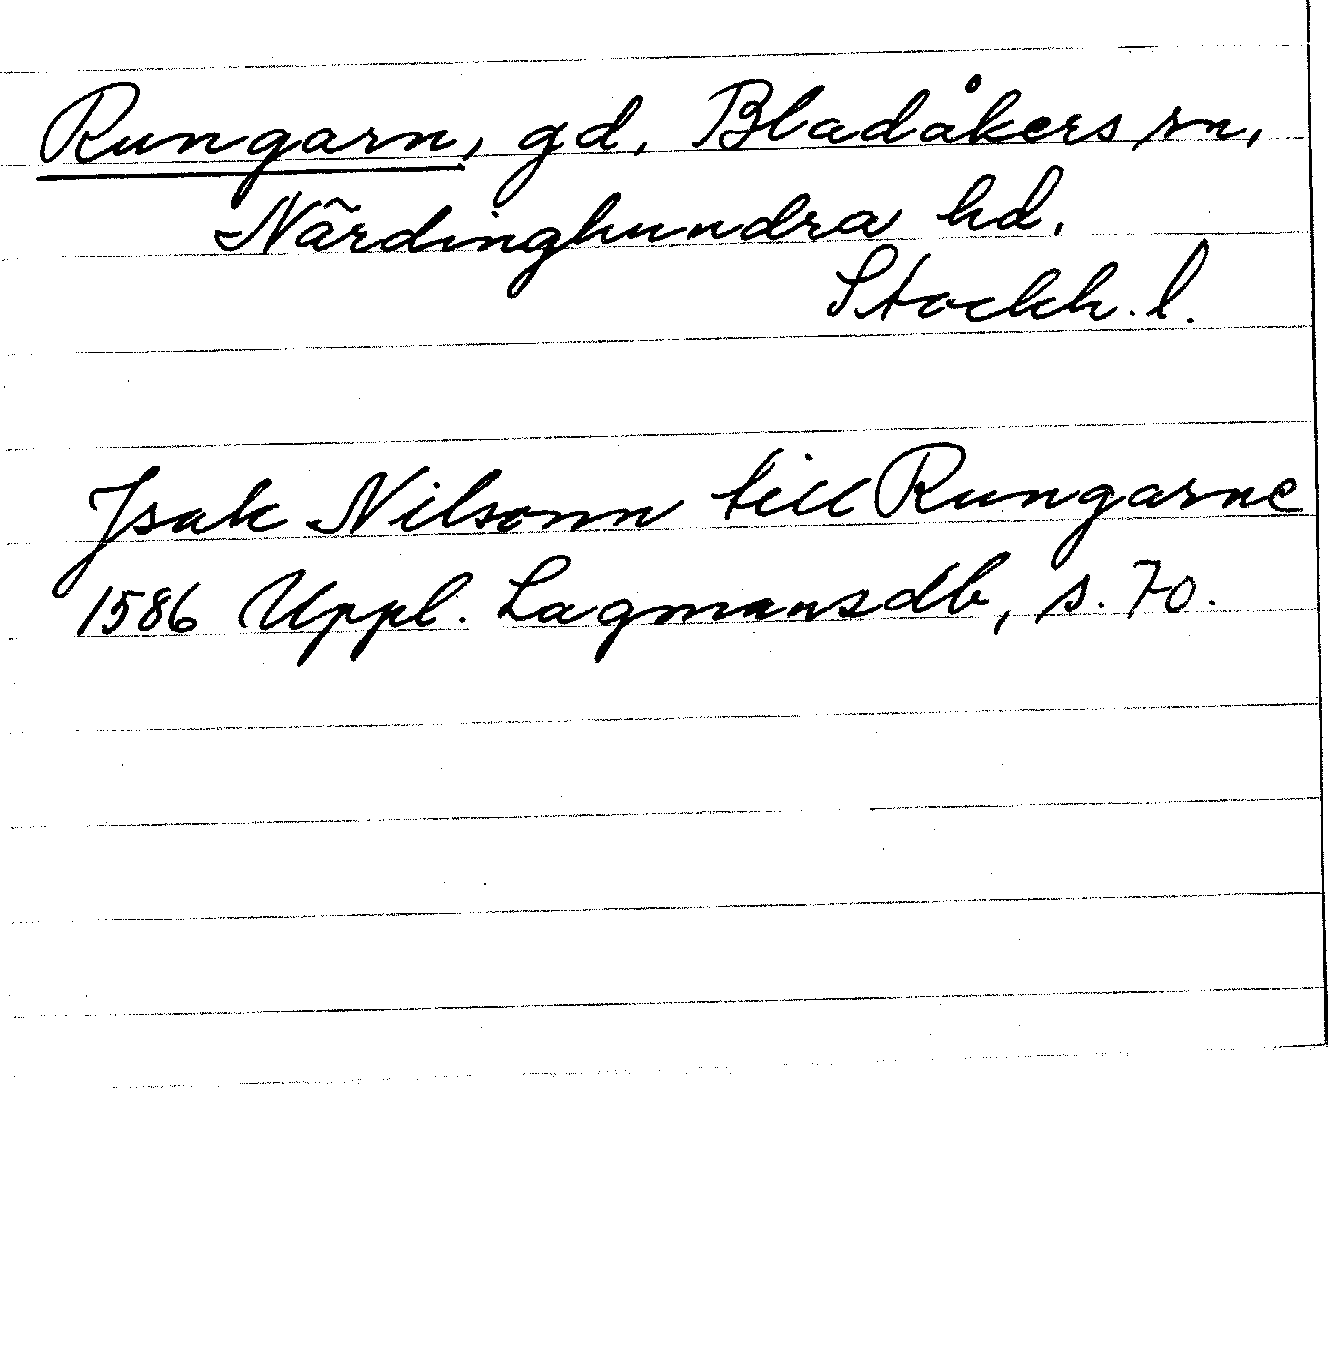 Rungarn, gd, Bladåkers sn,
Närdinghundra hd,
Stockh. l.
Isak Nilsonn till Rungarne
1586 Uppl. Lagmansdb, s. 70.